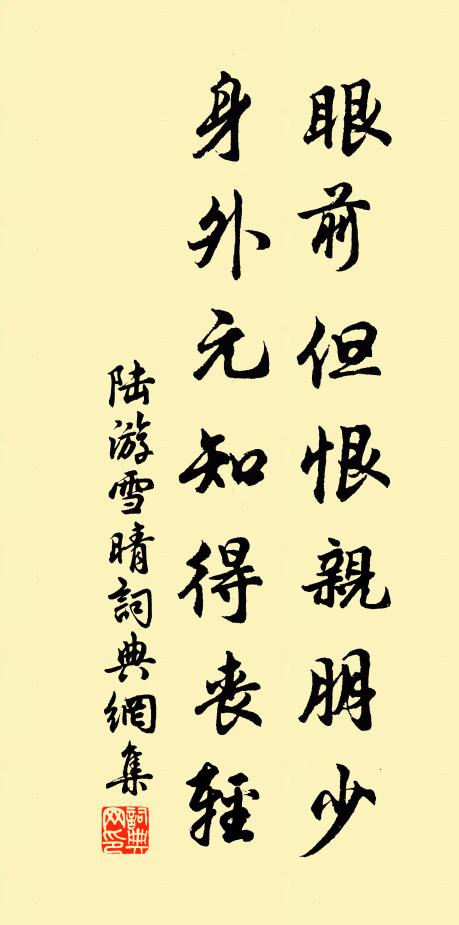 眼前但恨親朋少
身外元知得喪輕
陆游雪晴詞典網集
詞典網印